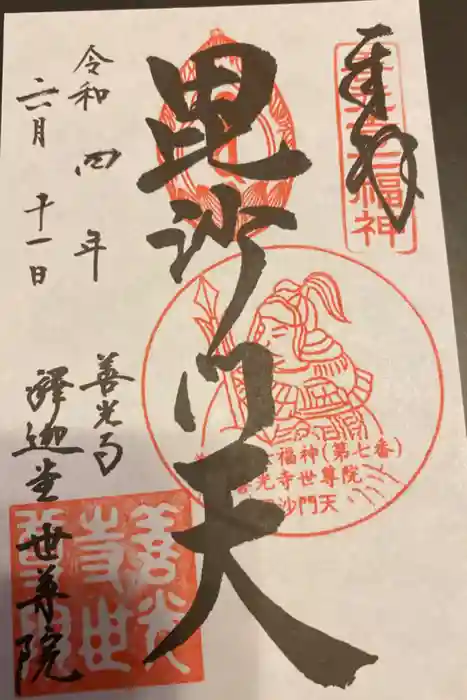 奉拝
福神
毘沙門天
福神(第七番)
善光寺世尊院
沙門天
令和四年
六月十一日
善光寺
釋迦堂世尊院
善光
寺世
尊院